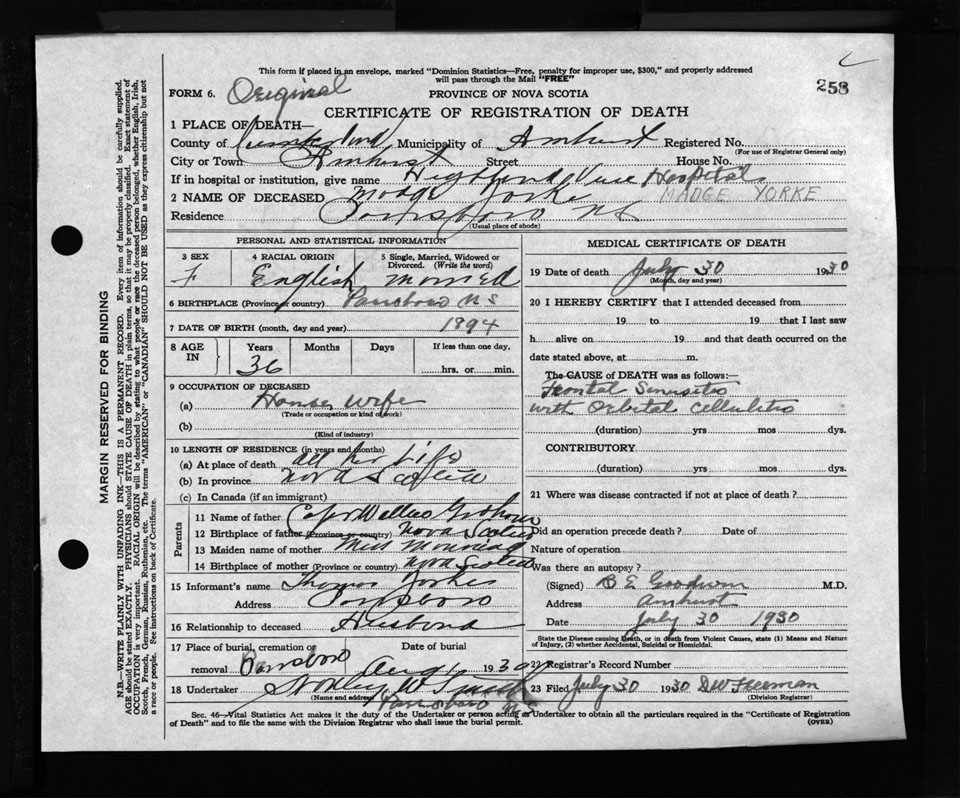 This form if placed in an envelope, marked "Dominion Statistics—Free, penalty for improper use, $300," and properly addressed
will pass through the Mail "FREE"
258
FORM 6. Original PROVINCE OF NOVA SCOTIA
CERTIFICATE OF REGISTRATION OF DEATH
1 PLACE OF DEATH—
County of Cumberland Municipality of Amherst Registered No.
(For use of Registrar General only)
City or Town Amherst Street House No.
If in hospital or institution, give name Highland View Hospital
2 NAME OF DECEASED Madge Yorke MADGE YORKE
Residence Parrsboro NS
(Usual place of abode)
PERSONAL AND STATISTICAL INFORMATION
3 SEX 4 RACIAL ORIGIN 5 Single, Married, Widowed or Divorced. (Write the word)
F English Married
6 BIRTHPLACE (Province or country) Parrsboro NS
7 DATE OF BIRTH (month, day and year) 1894
8 AGE IN Years Months Days If less than one day,
36 hrs. or min.
9 OCCUPATION OF DECEASED
(a) House wife
(Trade or occupation or kind of work)
(b)
(Kind of industry)
10 LENGTH OF RESIDENCE (in years and months)
(a) At place of death all her Life
(b) In province Nova Scotia
(c) In Canada (if an immigrant)
Parents
11 Name of father Capt Graham
12 Birthplace of father (Province or country) Nova Scotia
13 Maiden name of mother Miss
14 Birthplace of mother (Province or country) Nova Scotia
15 Informant's name Thomas Yorke
Address Parrsboro
16 Relationship to deceased Husband
17 Place of burial, cremation or Date of burial
removal Parrsboro Aug 1 1930
18 Undertaker W Smith
(Name and address)
Parrsboro N.S
MEDICAL CERTIFICATE OF DEATH
19 Date of death July 30 1930
(Month, day and year)
20 I HEREBY CERTIFY that I attended deceased from
19 to 19 that I last saw
h alive on 19 and that death occurred on the
date stated above, at m.
The CAUSE of DEATH was as follows:
Frontal Sinusitis
with Orbital cellulitis
(duration) yrs mos dys.
CONTRIBUTORY
(duration) yrs mos dys.
21 Where was disease contracted if not at place of death?
Did an operation precede death? Date of
Nature of operation
Was there an autopsy?
(Signed) B E Goodwin M.D.
Address Amherst
Date July 30 1930
State the Disease causing Death, or in death from Violent Causes, state (1) Means and Nature
of Injury, (2) whether Accidental, Suicidal or Homicidal.
Registrar's Record Number
23 Filed July 30 1930 DW Freeman
(Division Registrar)
Sec. 46—Vital Statistics Act makes it the duty of the Undertaker or person acting as Undertaker to obtain all the particulars required in the "Certificate of Registration
of Death" and to file the same with the Division Registrar who shall issue the burial permit. (OVER)
MARGIN RESERVED FOR BINDING
N.B.—WRITE PLAINLY WITH UNFADING INK—THIS IS A PERMANENT RECORD. Every item of information should be carefully supplied.
AGE should be stated EXACTLY. PHYSICIANS should STATE CAUSE OF DEATH in plain terms, so that it may be properly classified. Exact statement of
OCCUPATION is very important. RACIAL ORIGIN will be described by stating to what people or race the deceased person belonged, whether English, Irish,
Scotch, French, German, Russian, Ruthenian, etc. The terms "AMERICAN" or "CANADIAN" SHOULD NOT BE USED as they express citizenship but not
a race or people. See instructions on back of Certificate.